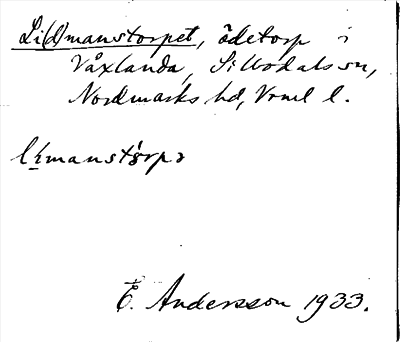 Li(d)manstorpet, ödetorp i
Våxlanda, Sillbodals sn,
Nordmarks hd, Vrml l.
lịmanstɷrpə
E. Andersson 1933.